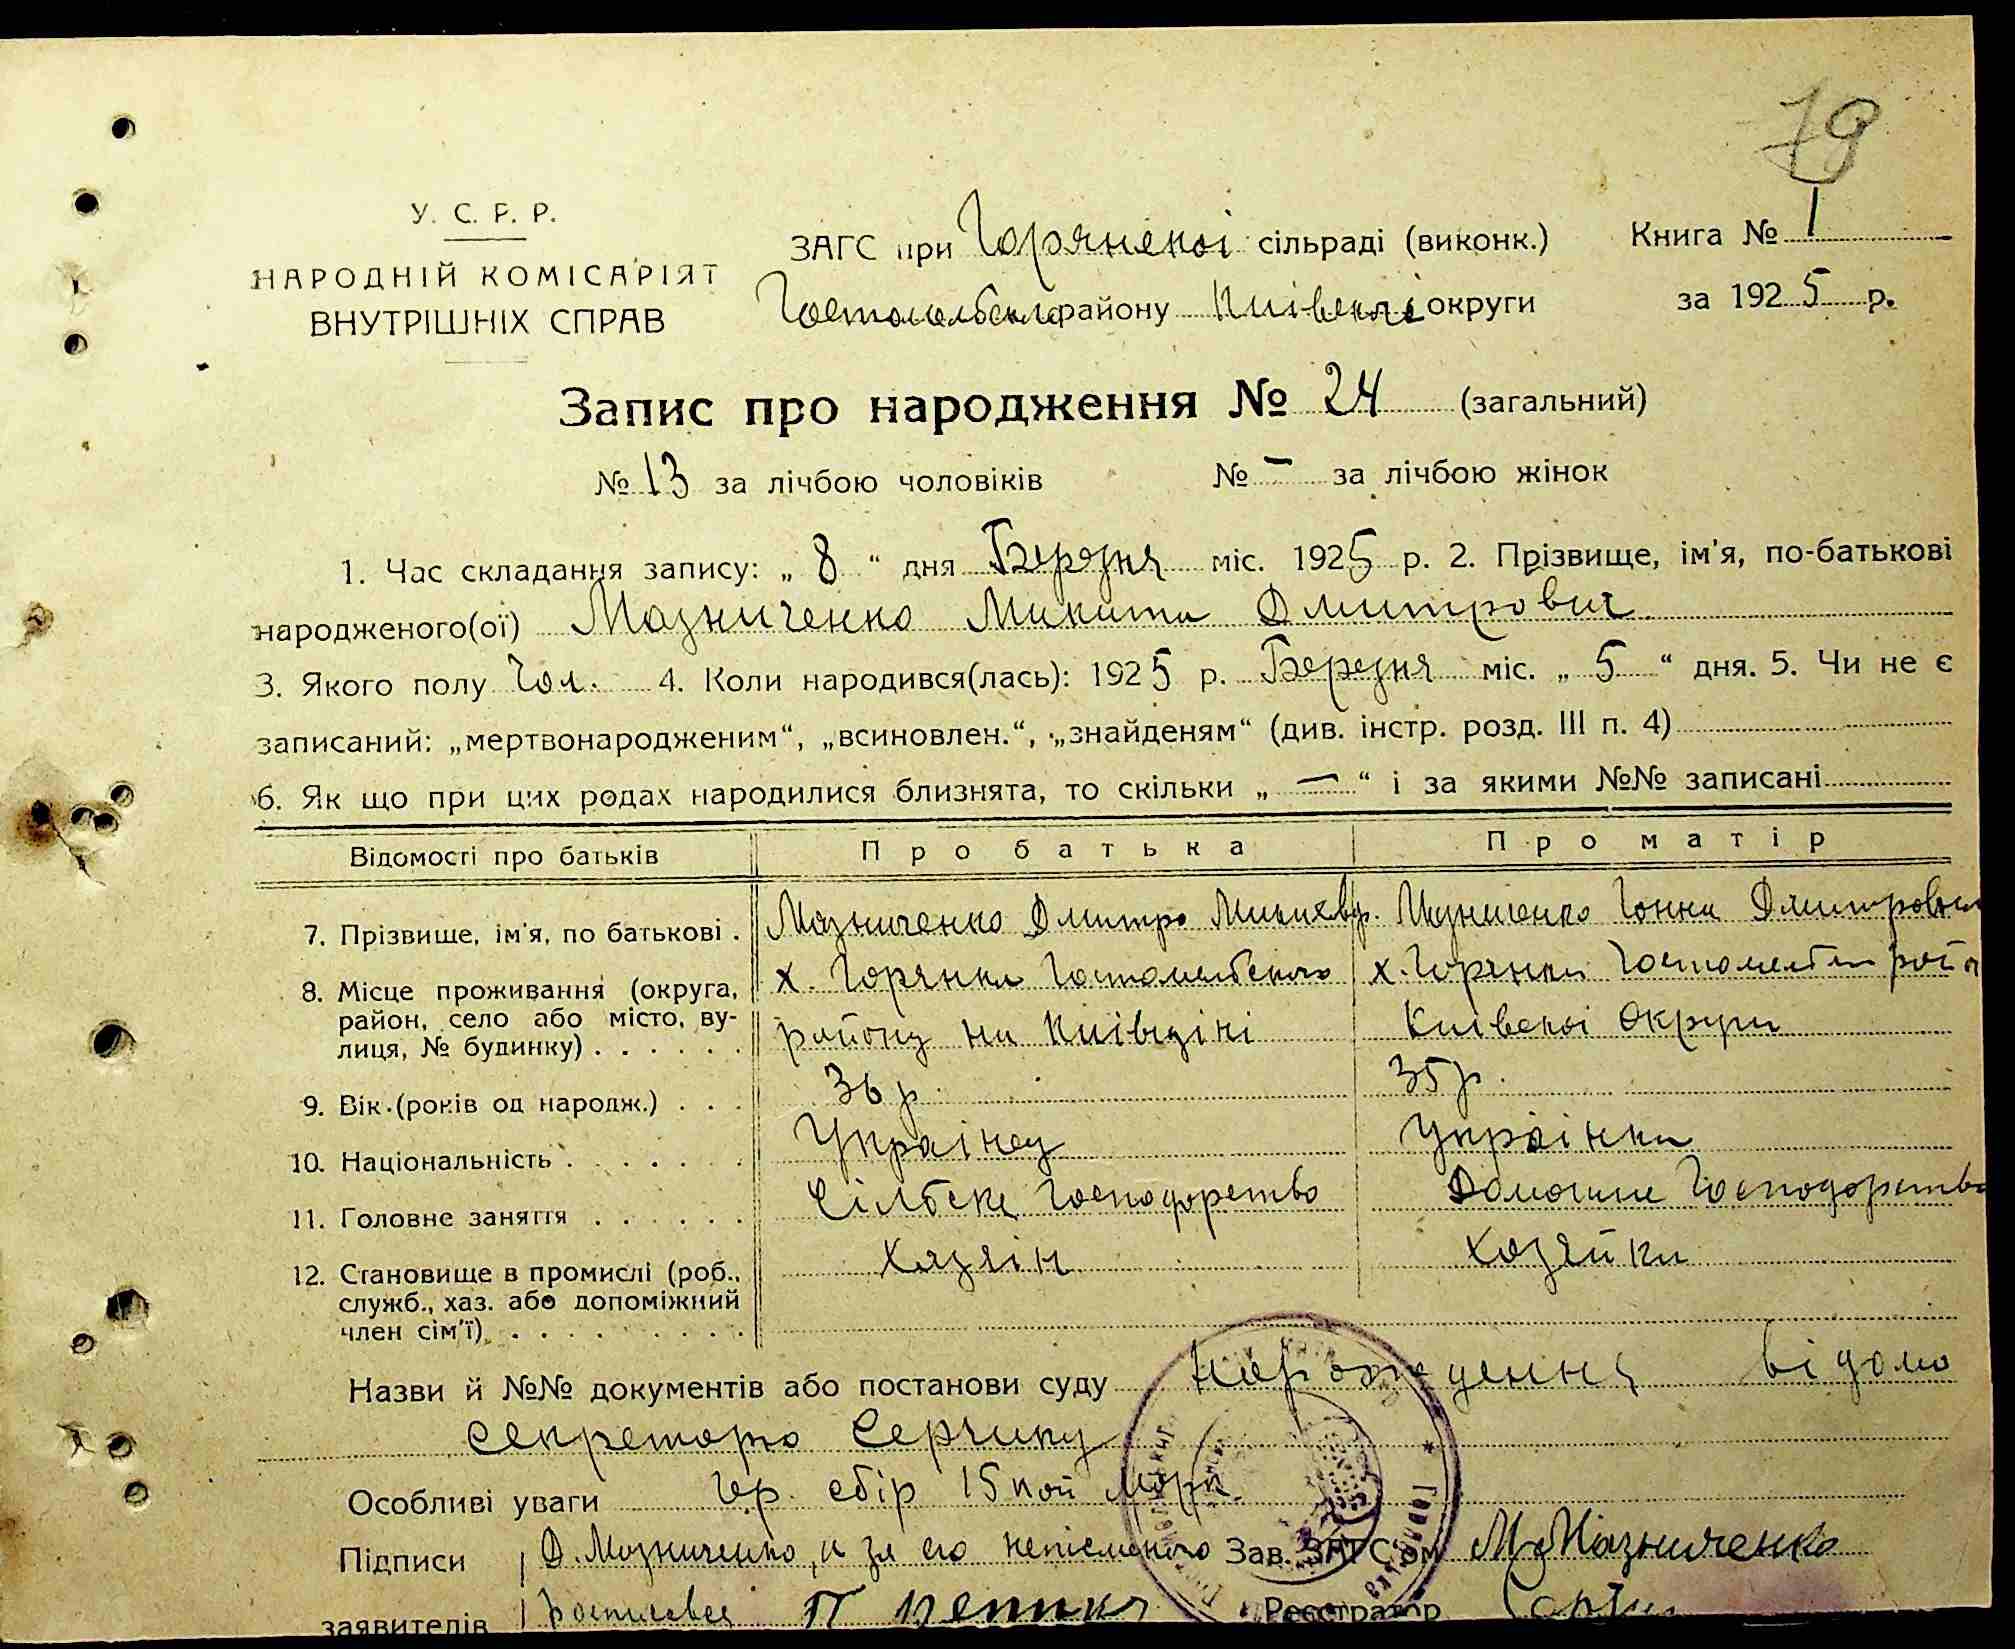 79
У. С. Р. Р.
НАРОДНІЙ КОМІСАРІЯТ
ВНУТРІШНІХ СПРАВ
ЗАГС при Горянскоі сільраді (виконк.) Книга № 1
Гостомельськ району Київскоі округи за 1925 р.
Запис про народження № 24 (загальний)
№ 13 за лічбою чоловіків № — за лічбою жінок
1. Час складання запису: „ 8 “ дня Березня міс. 1925 р. 2. Прізвище, ім'я, по-батькові
народженого(ої) Мазниченко Микита Дмитрович
3. Якого полу Чол. 4. Коли народився(лась): 1925 р. Березня міс. „ 5 “ дня. 5. Чи не є
записаний: „мертвонародженим“, „всиновлен.“, „знайденям“ (див. інстр. розд. III п. 4)
6. Як що при цих родах народилися близнята, то скільки „ — “ і за якими №№ записані
Відомості про батьків Про батька Про матір
7. Прізвище, ім'я, по батькові . Мазниченко Дмитро Мазниченко Ганна Дмитровна
8. Місце проживання (округа, х. Горянка Гостомельского х. Горянка
район, село або місто, ву- району на Київщіні Київскоі Округи
лиця, № будинку) . . . . . .
9. Вік (років од народж.) . . . 36 р. 35 р.
10. Національність . . . . . . . Українец Українка
11. Головне заняття . . . . . . Сільске Господарство Домашне Господарство
12. Становище в промислі (роб., Хазяін Хозяйка
служб., хаз. або допоміжний
член сім'ї) . . . . . . . . .
Назви й №№ документів або постанови суду Нарождення відомо
секретарю Серчику
Особливі уваги сбір 15 коп
Підписи Д. Мазниченко, а за его неписьменого Зав. ЗАГС'ом М. Мазниченко
заявителів росписався П Реєстратор